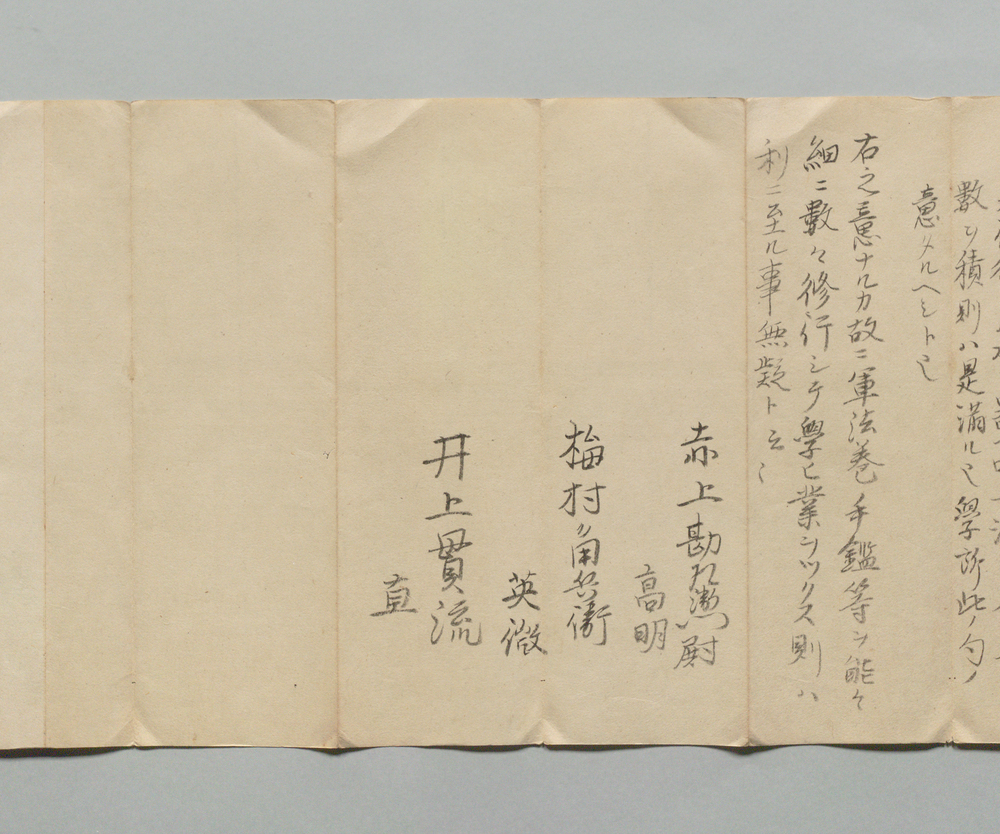 數ヲ積則ハ是満ル也學許此ノ勺ノ
意タルヘシト也
右之意ナルカ故ニ軍法巻手鑑等ヲ能々
細ニ數々修行シテ學ヒ業ヲツクス則ハ
利ニ至ル事無疑ト云々
赤上勘尉
高明
梅村角兵衛
英微
井上貫流
直